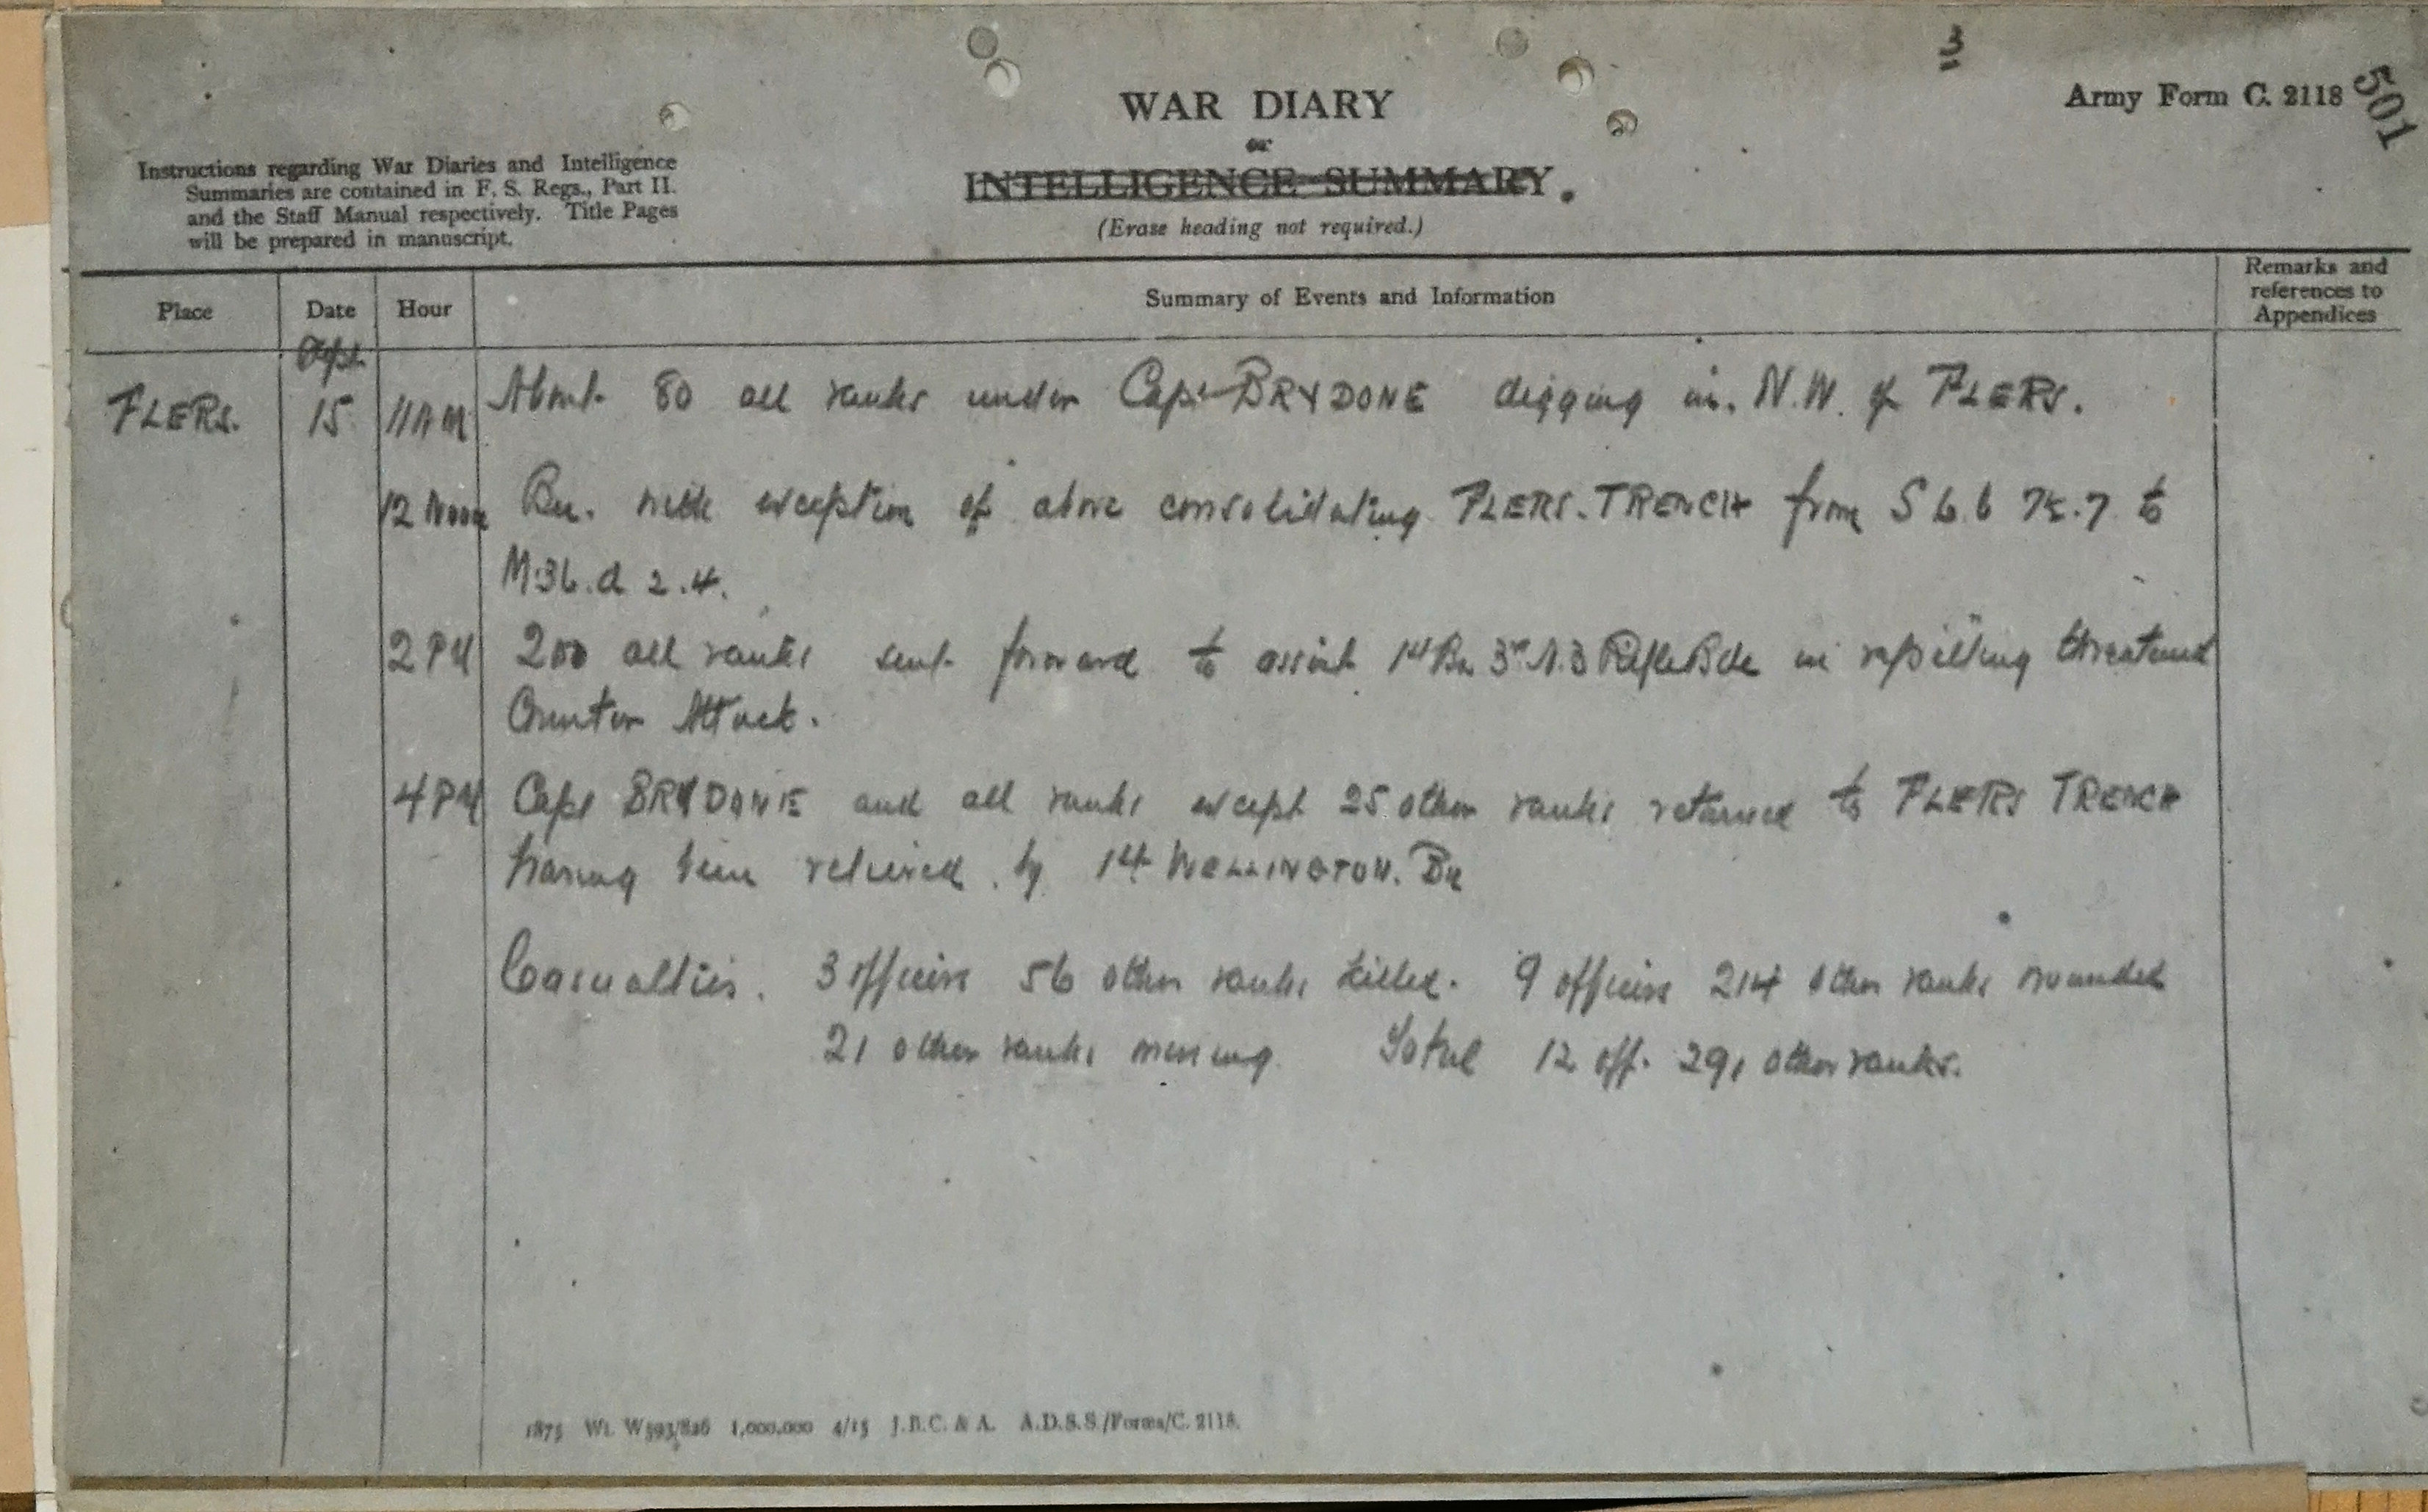 3
Army Form C. 2118
501
WAR DIARY
or
INTELLIGENCE SUMMARY.
(Erase heading not required.)
Instructions regarding War Diaries and Intelligence
Summaries are contained in F. S. Regs., Part II.
and the Staff Manual respectively. Title Pages
will be prepared in manuscript.
Place Date Hour Summary of Events and Information Remarks and
references to
Appendices
Sept.
FLERS. 15 11 AM About 80 all ranks under Capt BRYDONE digging in. N.W. of FLERS.
12 Noon Bn. with exception of above consolidating FLERS. TRENCH from S 6.b 75.7 to
M.36.d 2.4.
2 PM 200 all ranks sent forward to assist 1st Bn 3rd N.Z Rifle Bde in repelling threatened
Counter Attack.
4 PM Capt BRYDONE and all ranks except 25 other ranks returned to FLERS TRENCH
having been relieved by 1st WELLINGTON. Bn
Casualties. 3 officers 56 other ranks killed. 9 officers 214 other ranks wounded
21 other ranks missing. Total 12 off. 291 other ranks.
1875 Wt. W593/826 1,000,000 4/15 J.B.C. & A. A.D.S.S./Forms/C. 2118.